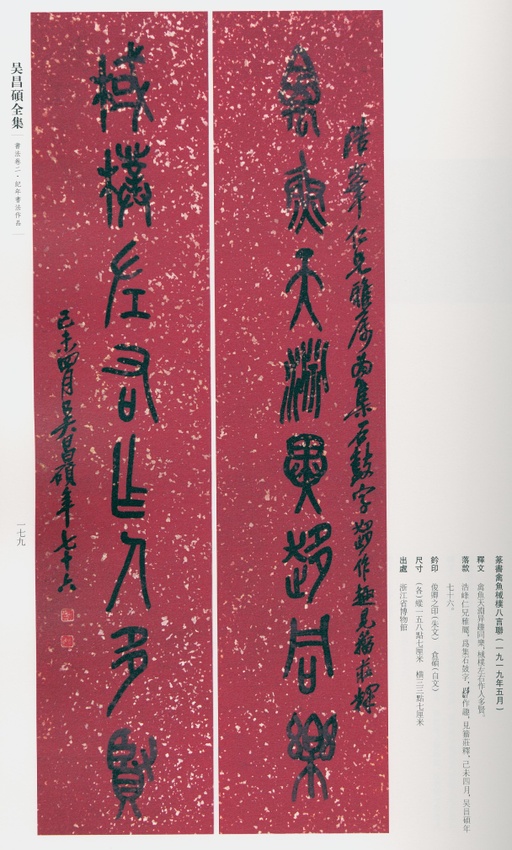 禽魚天淵異趣同樂
棫樸左右作人多賢
浩峯仁兄雅屬為集石鼓字 作趣見籀莊釋
己未四月吳昌碩年七十六
吴昌碩全集
書法卷二·紀年書法作品
一七九
篆書禽魚棫樸八言聯(一九一九年五月)
釋文 禽魚天淵異趣同樂,棫樸左右作人多賢。
落款 浩峰仁兄雅屬,爲集石鼓字, 作趣,見籀莊釋,己未四月,吴昌碩年
七十六。
鈐印 俊卿之印(朱文) 倉碩(白文)
尺寸 (各)縱一五八點七厘米 橫三三點七厘米
出處 浙江省博物館